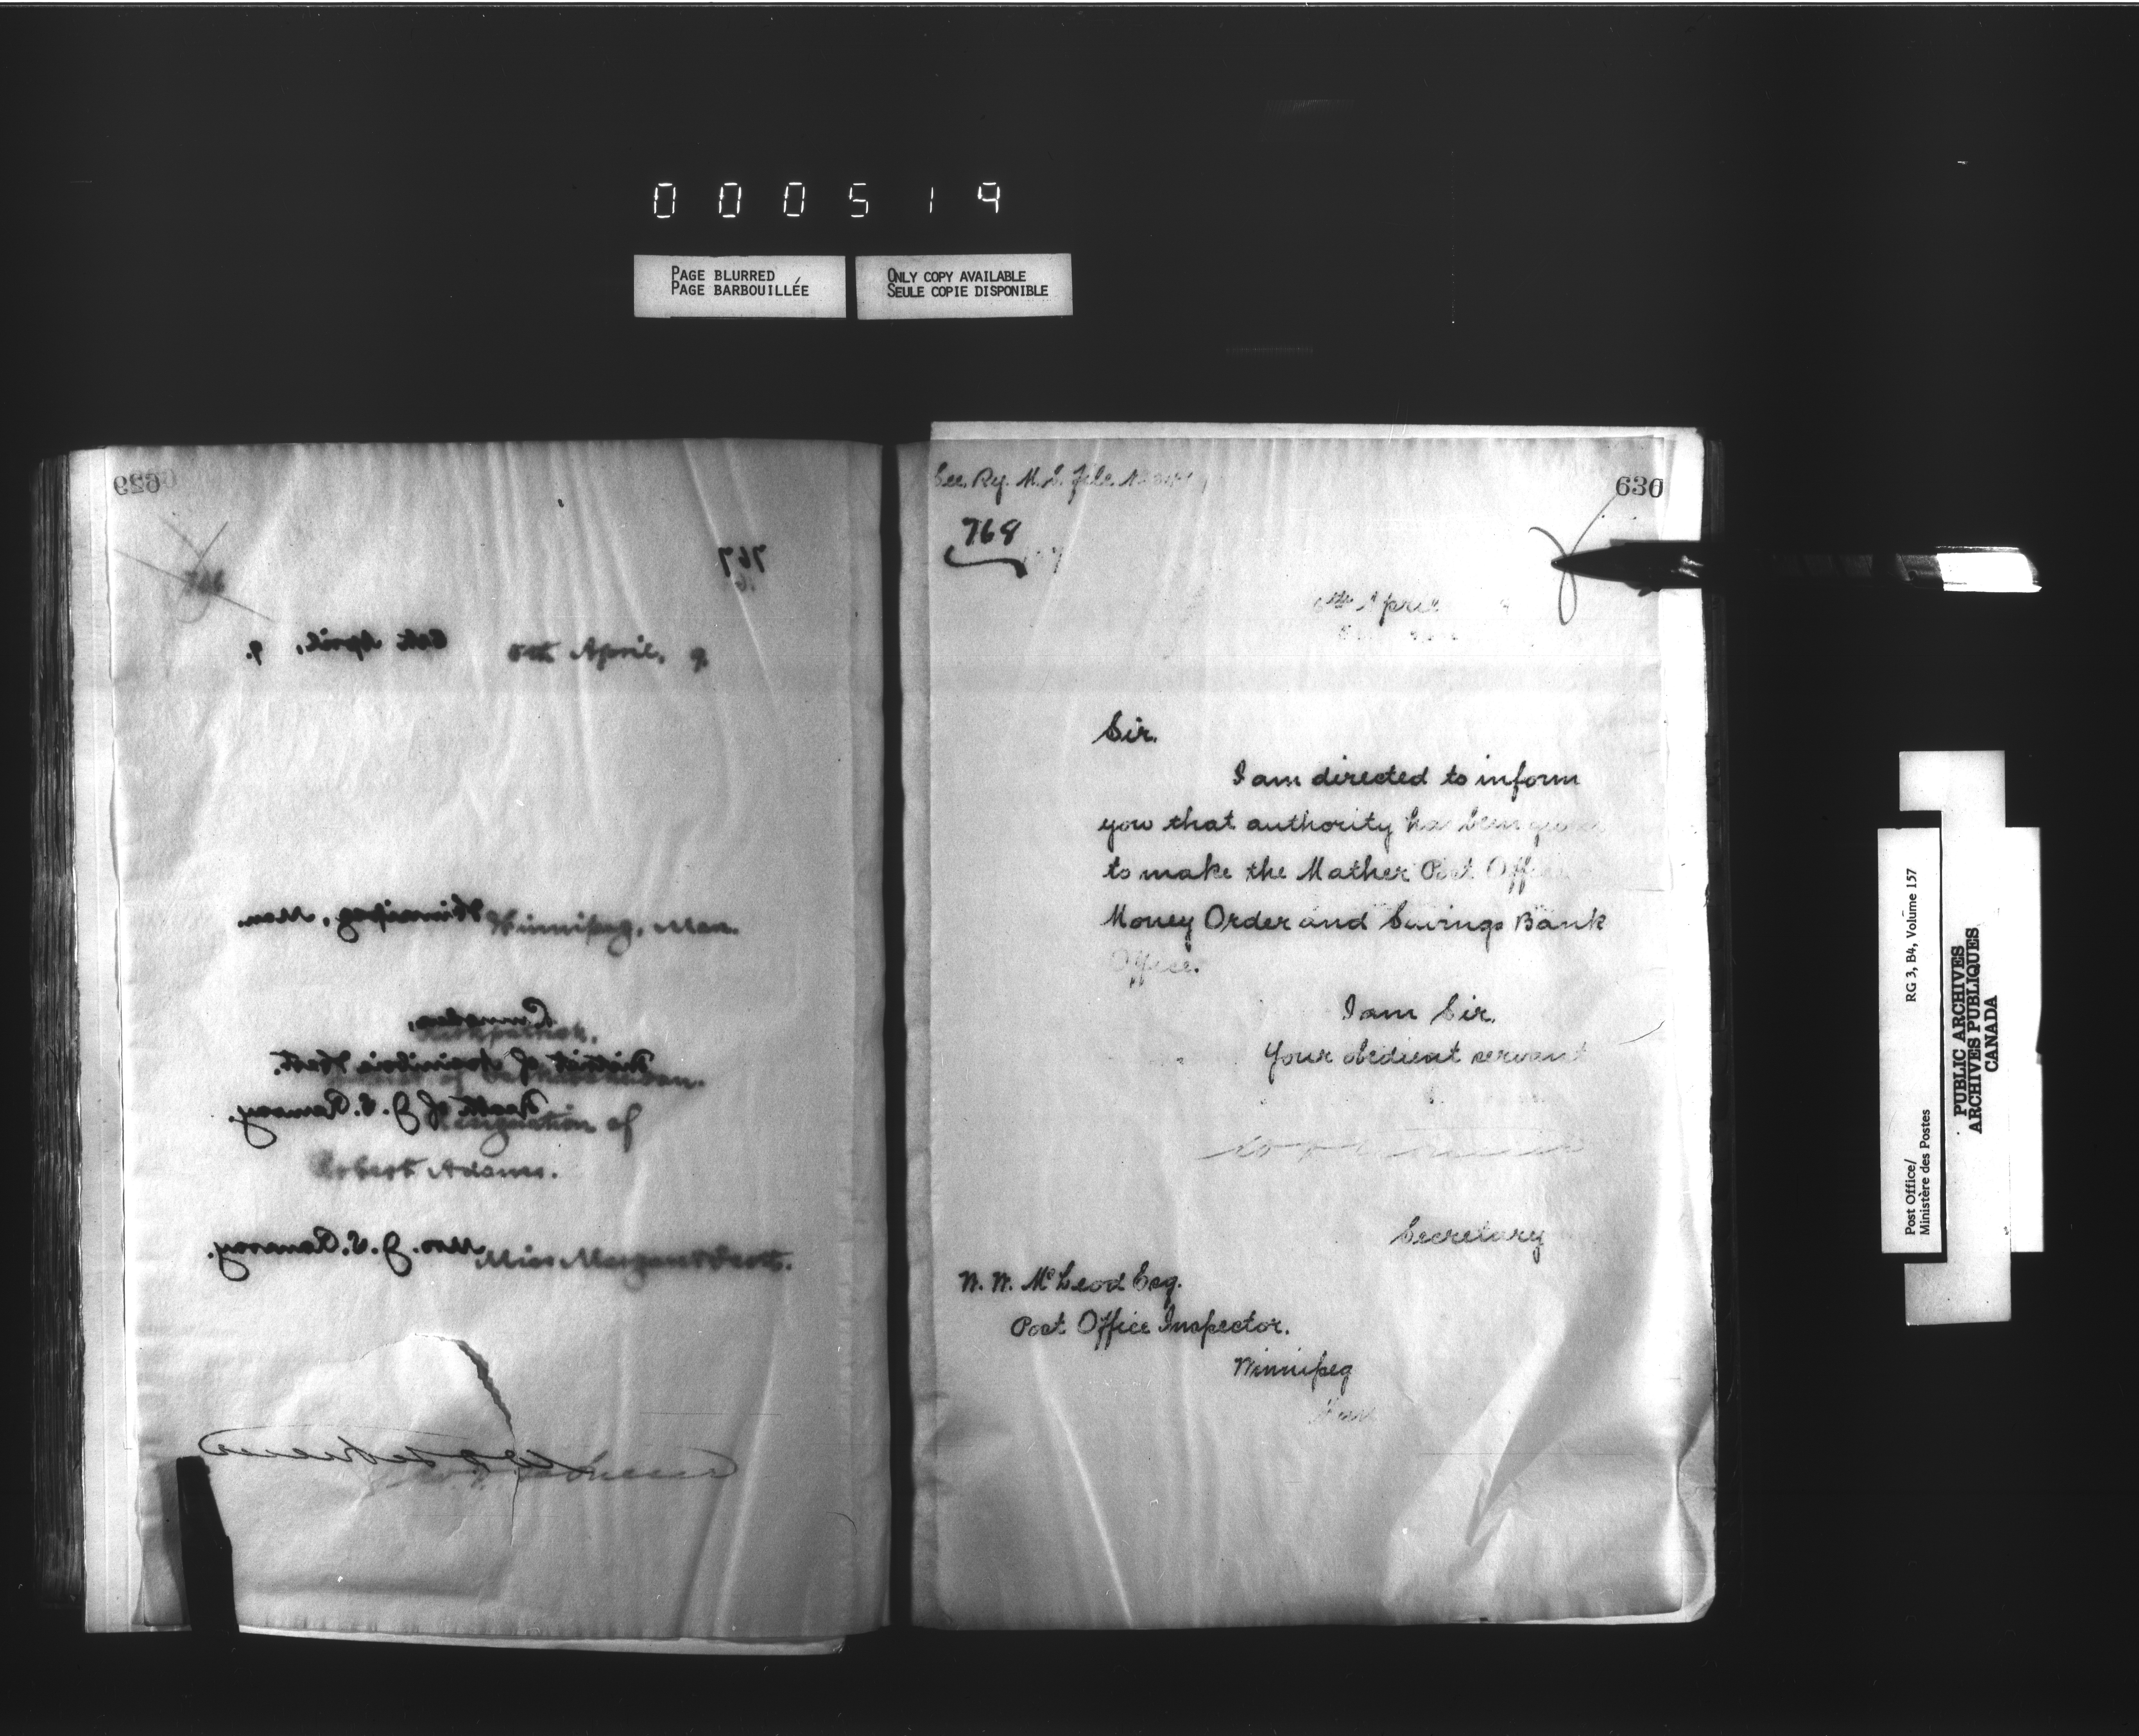 000519
PAGE BLURRED
PAGE BARBOUILLÉE
ONLY COPY AVAILABLE
SEULE COPIE DISPONIBLE
629
767
6th April, 9.
5th April, 9
Winnipeg, Man.
Winnipeg, Man.
District of Assiniboia West.
Death of J. S. Ramsay.
Resignation of
Robert Adams.
Mrs. J. S. Ramsay.
Miss Margaret
630
See Ry. M. S. File
768
6th April
Sir.
I am directed to inform
you that authority has been given
to make the Mather Post Office
Money Order and Savings Bank
Office.
I am Sir,
Your obedient servant
Secretary
W. W. McLeod Esq.
Post Office Inspector.
Winnipeg
Man
Post Office/
Ministère des Postes
RG 3, B4, Volume 157
PUBLIC ARCHIVES
ARCHIVES PUBLIQUES
CANADA